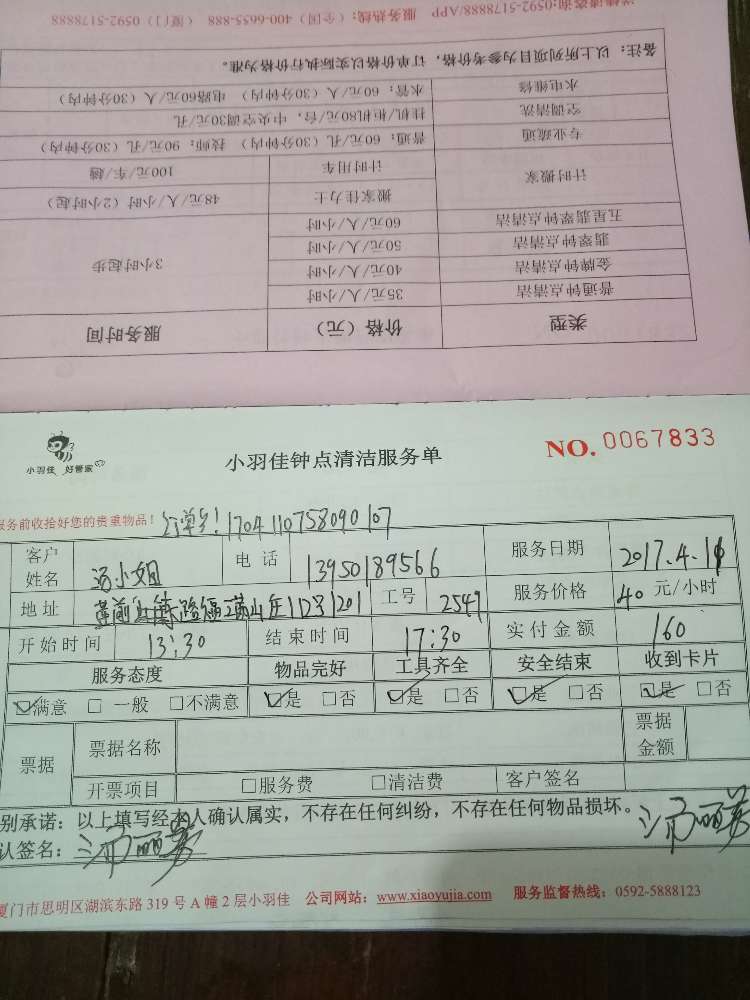 详情咨询:0592-5178888/APP 服务热线:(全国)400-6655-888 (厦门)0592-5178888
备注:以上所列项目为参考价格,订单价格以实际执行价格为准。
水电维修 水管:60元/人(30分钟内) 电路60元/人(30分钟内)
空调清洗 挂机/柜机80元/台,中央空调30元/孔
专业疏通 普通:60元/孔(30分钟内) 技师:90元/孔(30分钟内)
计时搬家 计时用车 100元/车/趟
搬家佳力士 48元/人/小时(2小时起)
五星翡翠钟点清洁 60元/人/小时
翡翠钟点清洁 50元/人/小时 3小时起步
金牌钟点清洁 40元/人/小时
普通钟点清洁 35元/人/小时
类型 价格(元) 服务时间
小羽佳 好管家
小羽佳钟点清洁服务单
NO. 0067833
服务前收拾好您的贵重物品! 订单号! 170411075809010
客户姓名 汤小姐 电话 13950189566 服务日期 2017.4.11
地址 12号1201 工号 2549 服务价格 40 元/小时
开始时间 13:30 结束时间 17:30 实付金额 160
服务态度 物品完好 工具齐全 安全结束 收到卡片
☑满意 □一般 □不满意 ☑是 □否 ☑是 □否 ☑是 □否 ☑是 □否
票据 票据名称 票据金额
开票项目 □服务费 □清洁费 客户签名
别承诺:以上填写经本人确认属实,不存在任何纠纷,不存在任何物品损坏。
认签名:
厦门市思明区湖滨东路 319 号 A 幢 2 层小羽佳 公司网站:www.xiaoyujia.com 服务监督热线:0592-5888123